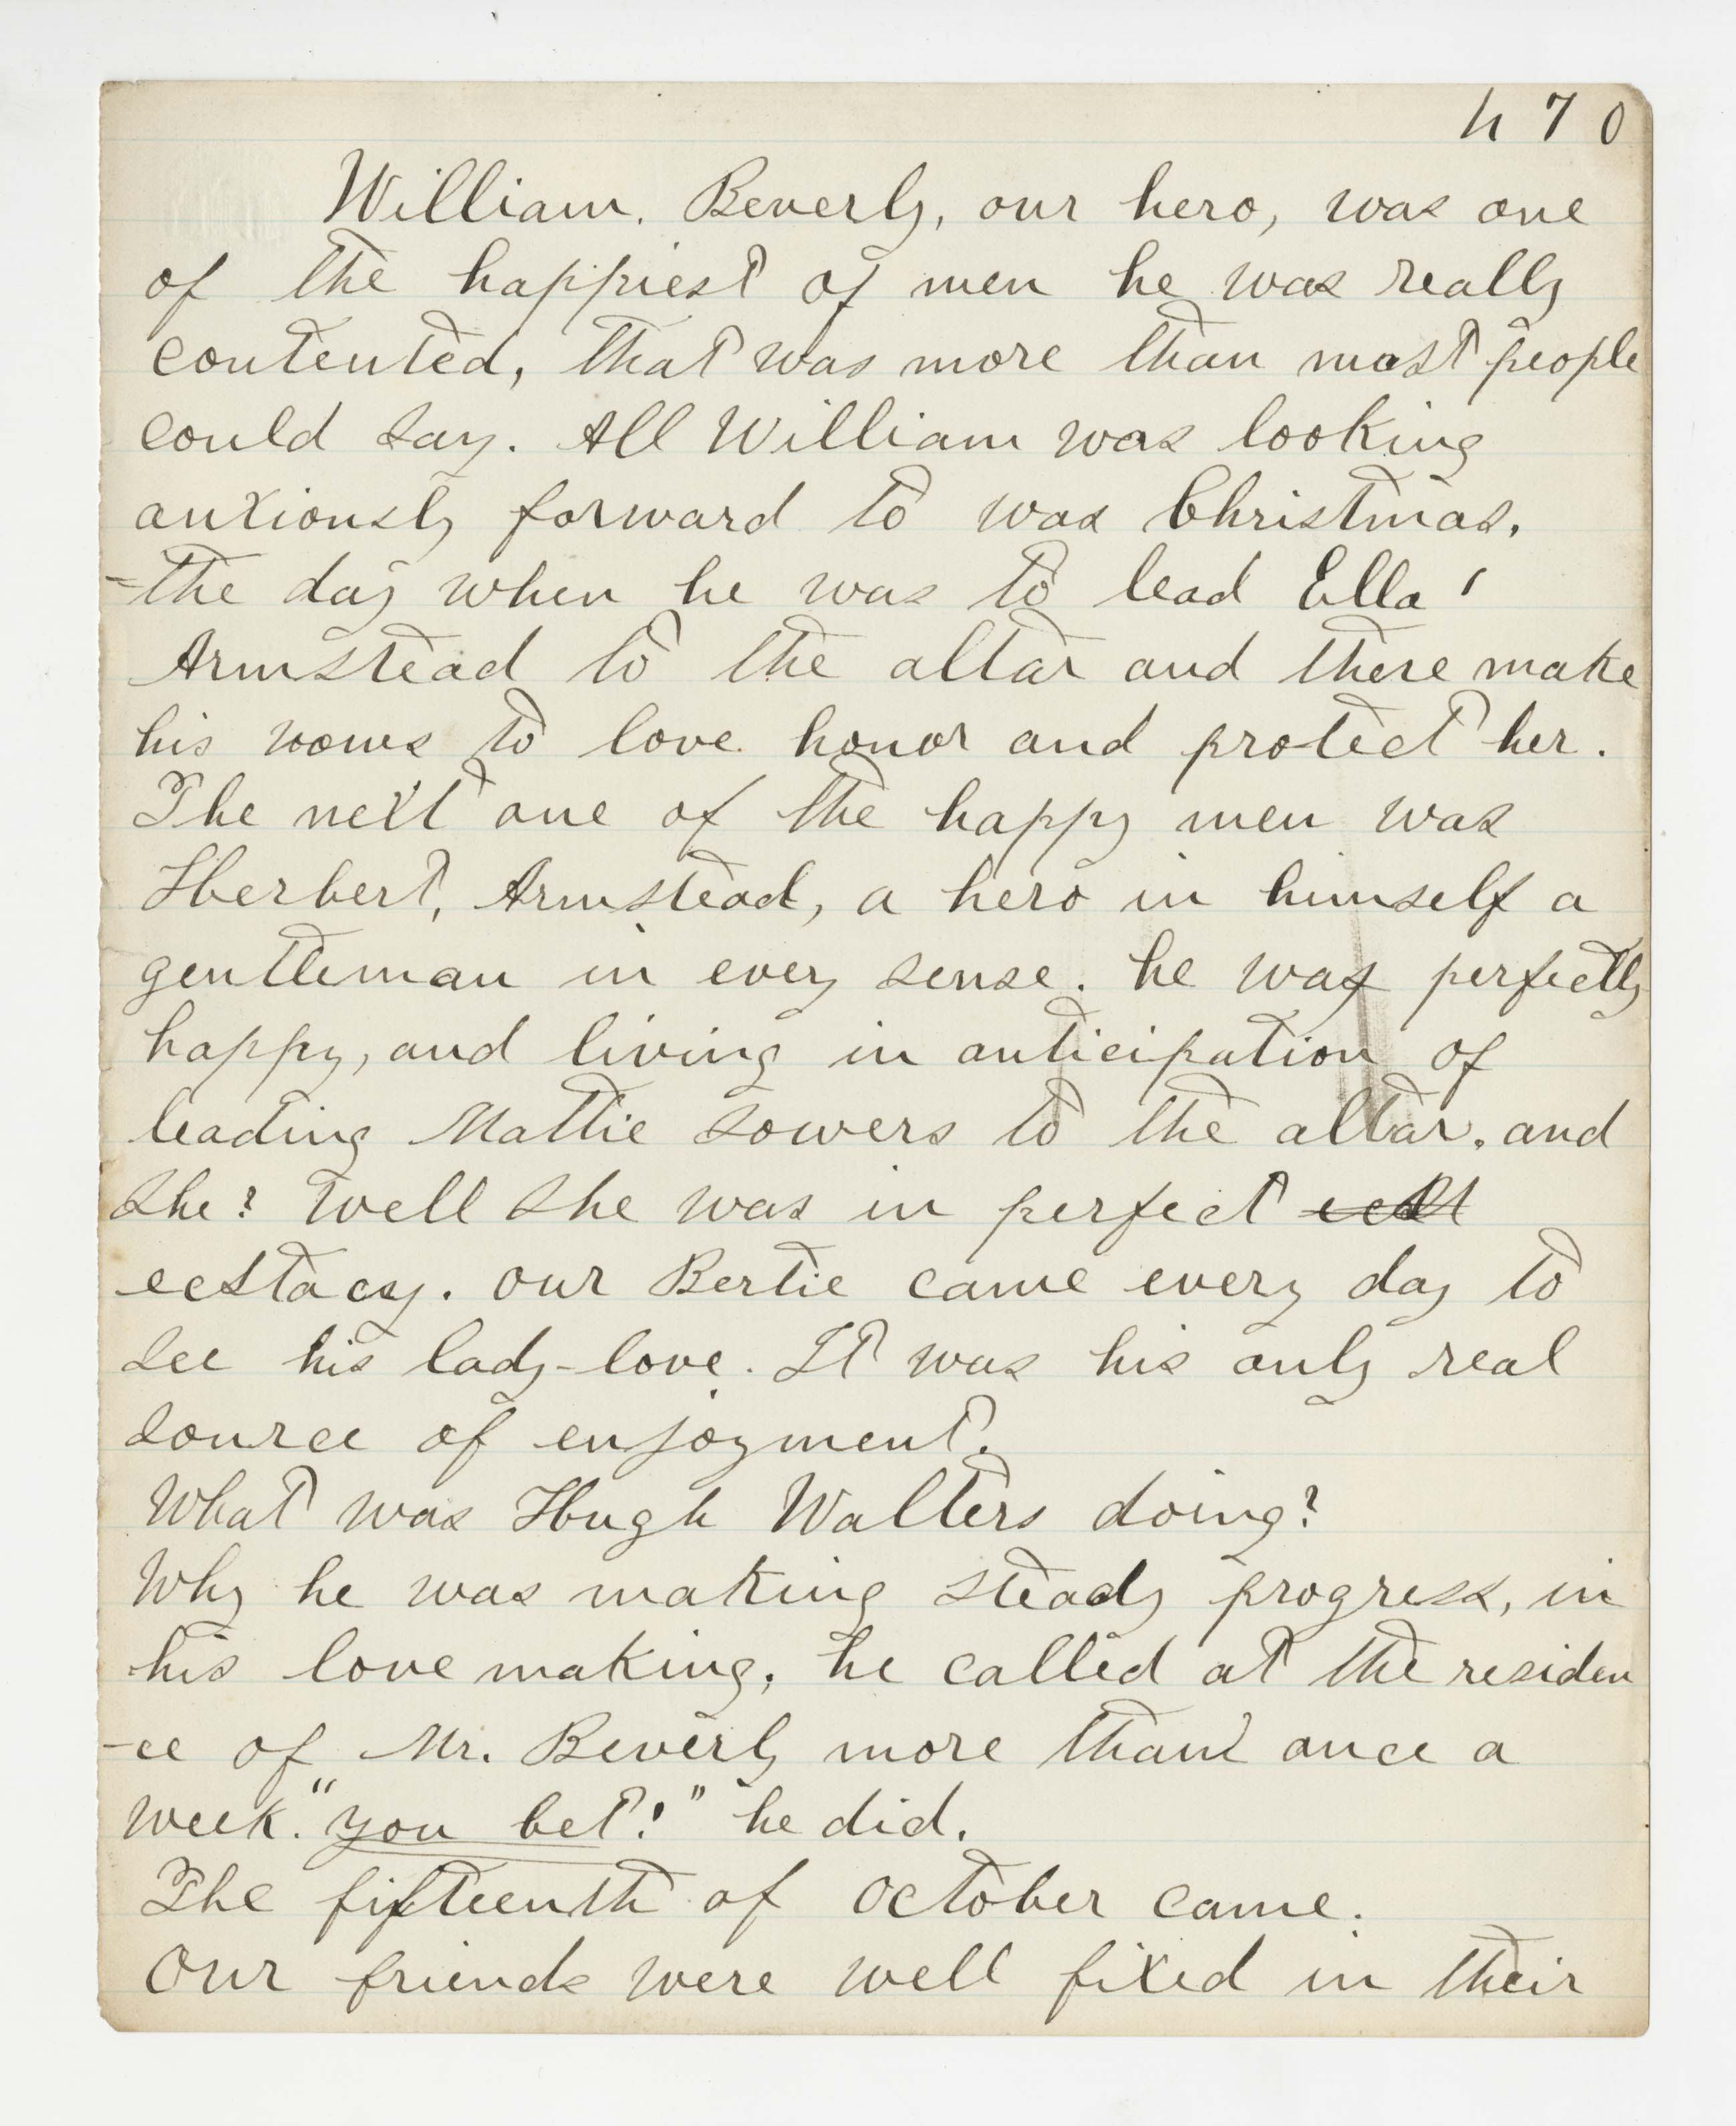 470
William. Beverly, our hero, was one
of the happiest of men he was really
contented, that was more than most people
could say. All William was looking
anxiously forward to was Christmas.
-the day when he was to lead Ella'
Armstead to the altar and there make
his vows to love honor and protect her.
The next one of the happy men was
Herbert, Armstead, a hero in himself a
gentleman in every sense. he was perfectly
happy, and living in anticipation of
leading Mattie Sowers to the altar. and
She? Well She was in perfect
ecstacy. Our Bertie came every day to
see his lady-love. It was his only real
source of enjoyment.
What was Hugh Walters doing?
Why he was making steady progress, in
his love making, he called at the residen
-ce of Mr. Beverly more than once a
week. "you bet!" he did.
The fifteenth of October came.
Our friends were well fixed in their